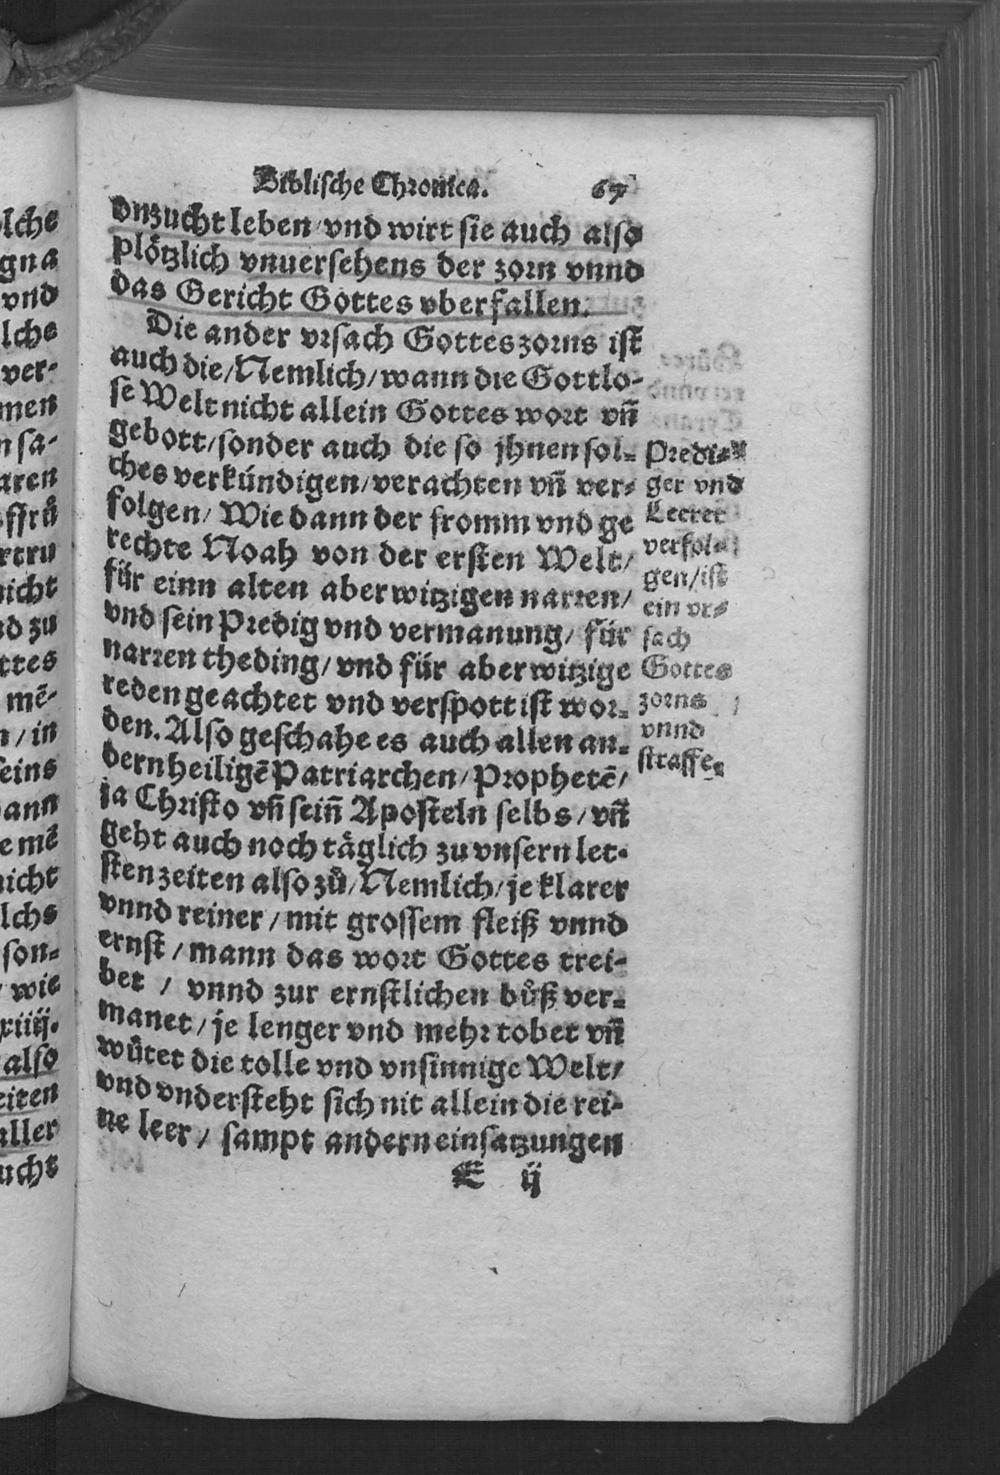 Biblische Chronica. 67
vnzucht leben / vnd wirt sie auch also
plötzlich vnuersehens der zorn vnnd
das Gericht Gottes vberfallen.
Die ander vrsach Gottes zorns ist
auch die / Nemlich / wann die Gottlo-
se Welt nicht allein Gottes wort vñ
gebott / sonder auch die so jhnen sol-
ches verkündigen / verachten vñ ver-
folgen / Wie dann der fromm vnd ge
rechte Noah von der ersten Welt /
für einn alten aberwitzigen narren /
vnd sein Predig vnd vermanung / für
narren theding / vnd für aberwitzige
reden geachtet vnd verspott ist wor-
den. Also geschahe es auch allen an-
dern heiligē Patriarchen / Prophetē /
ja Christo vñ seiñ Aposteln selbs / vñ
geht auch noch täglich zu vnsern let-
sten zeiten also zů / Nemlich / je klarer
vnnd reiner / mit grossem fleiß vnnd
ernst / mann das wort Gottes trei-
bet / vnnd zur ernstlichen bůß ver-
manet / je lenger vnd mehr tobet vñ
wůtet die tolle vnd vnsinnige Welt /
vnd vndersteht sich nit allein die rei-
ne leer / sampt andern einsatzungen
E ij
Predi-
ger vnd
Leerer
verfol-
gen / ist
ein vr-
sach
Gottes
zorns
vnnd
straffe.
lche
gna
vnd
lche
ver-
men
n sa-
aren
offrů
rtru
nicht
nd zu
ttes
mē-
n / in
seins
ann
e mē
nicht
lchs
son-
/ wie
xiiij.
also
eiten
aller
ucht